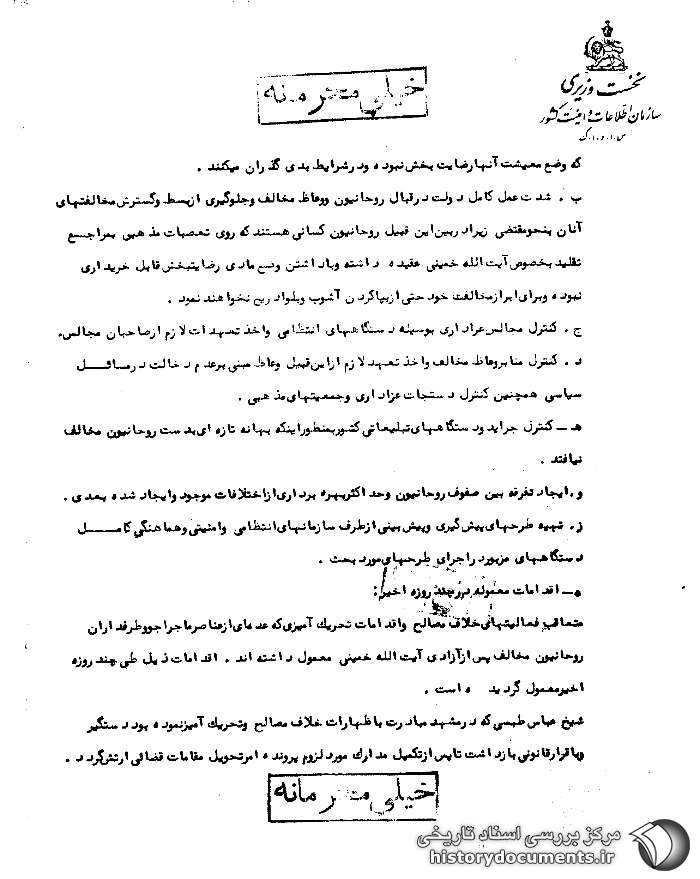 نخست وزیری
سازمان اطلاعات و امنیت کشور
س.ا.و.ا.ک
خیلی محرمانه
که وضع معیشت آنها رضایت بخش نبوده و در شرایط بدی گذران میکنند .
ب . شدت عمل کامل دولت در قبال روحانیون و وعاظ مخالف و جلوگیری از بسط و گسترش مخالفتهای
آنان بنحو مقتضی زیرا در بین این قبیل روحانیون کسانی هستند که روی تعصبات مذهبی بمراجع
تقلید بخصوص آیت الله خمینی عقیده داشته و با داشتن وضع مادی رضایتبخش قابل خریداری
نبوده و برای ابراز مخالفت خود حتی از بپا کردن آشوب و بلوا دریغ نخواهند نمود .
ج . کنترل مجالس عزاداری بوسیله دستگاههای انتظامی و اخذ تعهدات لازم از صاحبان مجالس.
د . کنترل منابر وعاظ مخالف و اخذ تعهد لازم از این قبیل وعاظ مبنی بر عدم دخالت در مسائل
سیاسی همچنین کنترل دستجات عزاداری و جمعیتهای مذهبی .
هـ ـ کنترل جراید و دستگاههای تبلیغاتی کشور بمنظور اینکه بهانه تازه ای بدست روحانیون مخالف
نیافتد .
و . ایجاد تفرقه بین صفوف روحانیون و حداکثر بهره برداری از اختلافات موجود و ایجاد شده بعدی .
ز . تهیه طرحهای پیش گیری و پیش بینی از طرف سازمانهای انتظامی و امنیتی و هماهنگی کامل
دستگاههای مزبور در اجرای طرحهای مورد بحث .
ـ اقدامات معموله در چند روزه اخیر :
متعاقب فعالیتهای خلاف مصالح و اقدامات تحریک آمیزی که عده ای از عناصر ماجراجو و طرفداران
روحانیون مخالف پس از آزادی آیت الله خمینی معمول داشته اند . اقدامات ذیل طی چند روزه
اخیر معمول گردیده است .
شیخ عباس طبسی که در مشهد مبادرت باظهارات خلاف مصالح و تحریک آمیز نموده بود دستگیر
و با قرار قانونی بازداشت تا پس از تکمیل مدارک مورد لزوم پرونده امر تحویل مقامات قضائی ارتش گردد .
خیلی محرمانه
مرکز بررسی اسناد تاریخی
historydocuments.ir